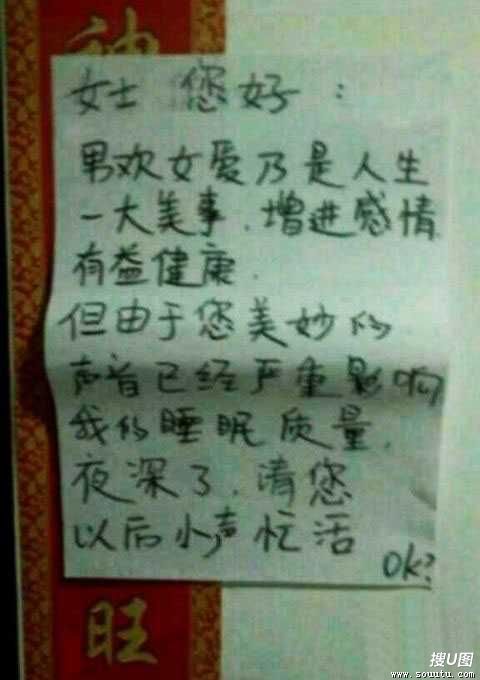 神
女士 您好：
男欢女爱乃是人生
一大美事.增进感情
有益健康.
但由于您美妙的
声音已经严重影响
我的睡眠质量.
夜深了.请您
以后小声忙活
OK?
旺
搜U图
www.souutu.com